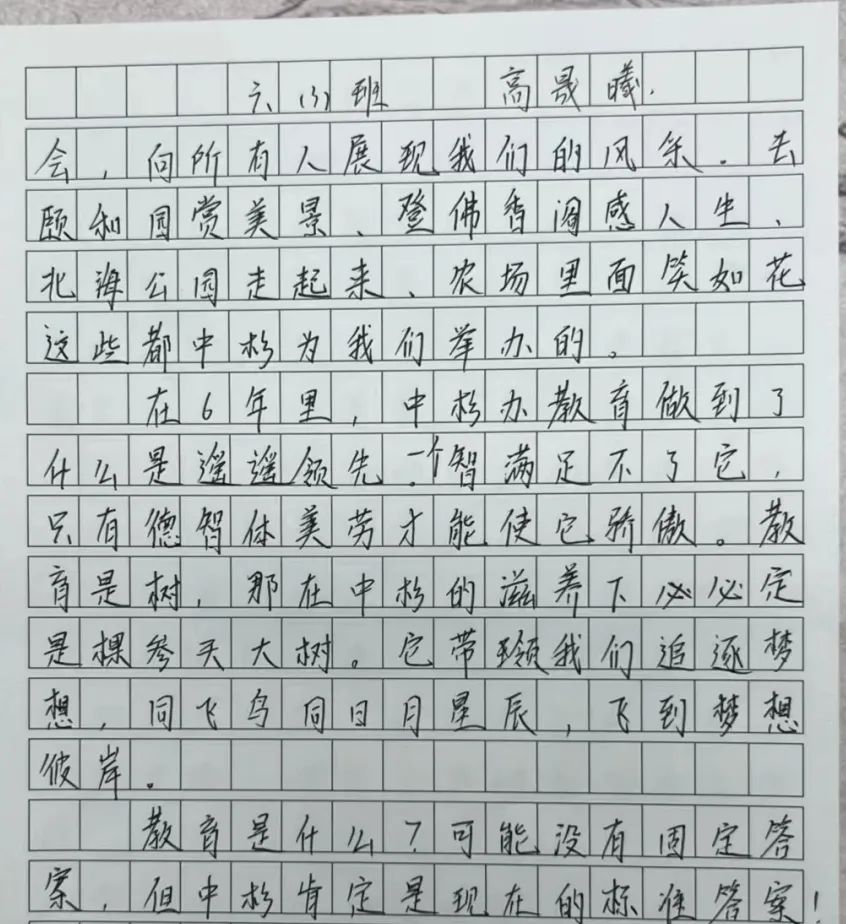 六(3)班 高晟曦.
会，向所有人展现我们的风采。去
颐和园赏美景、登佛香阁感人生、
北海公园走起来、农场里面笑如花
这些都中杉为我们举办的。
在6年里，中杉办教育做到了
什么是遥遥领先.一个智满足不了它，
只有德智体美劳才能使它骄傲。教
育是树，那在中杉的滋养下必定
是棵参天大树。它带领我们追逐梦
想，同飞鸟同日月星辰，飞到梦想
彼岸。
教育是什么？可能没有固定答
案，但中杉肯定是现在的标准答案！